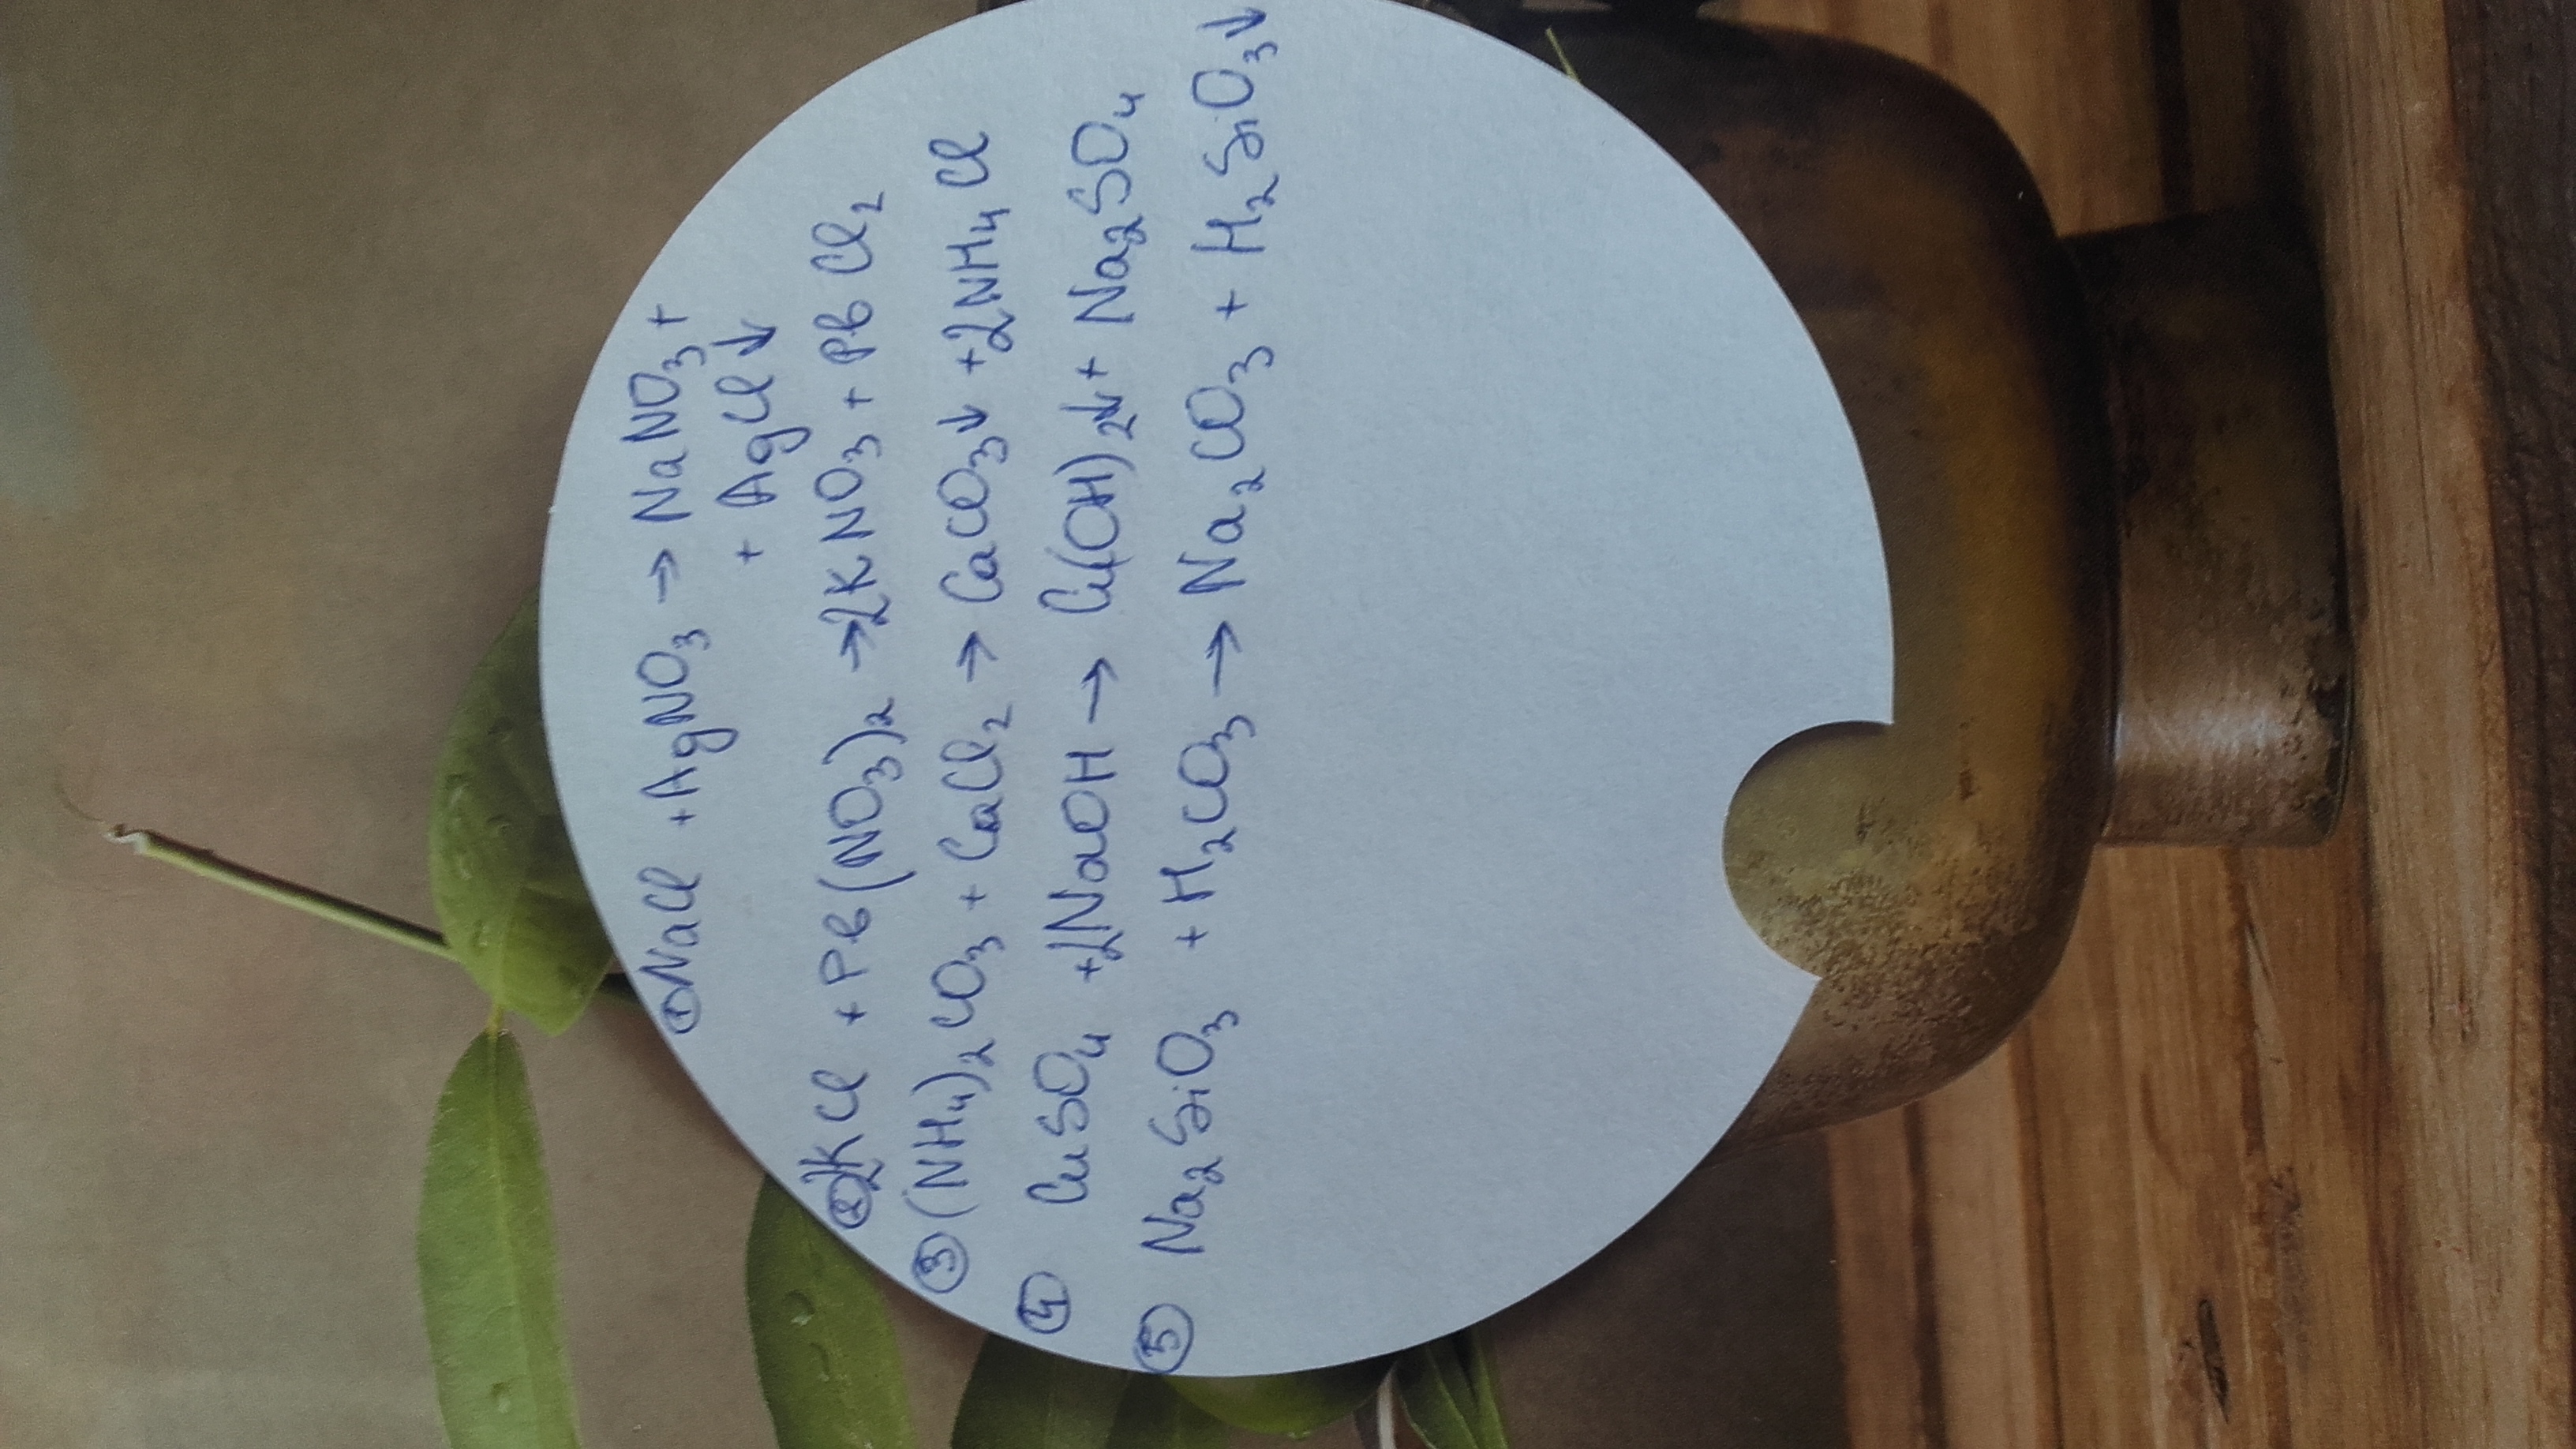 ① NaCl + AgNO₃ → NaNO₃ +
+ AgCl↓
② 2KCl + Pb(NO₃)₂ → 2KNO₃ + PbCl₂
③ (NH₄)₂CO₃ + CaCl₂ → CaCO₃↓ + 2NH₄Cl
④ CuSO₄ + 2NaOH → Cu(OH)₂↓ + Na₂SO₄
⑤ Na₂SiO₃ + H₂CO₃ → Na₂CO₃ + H₂SiO₃↓